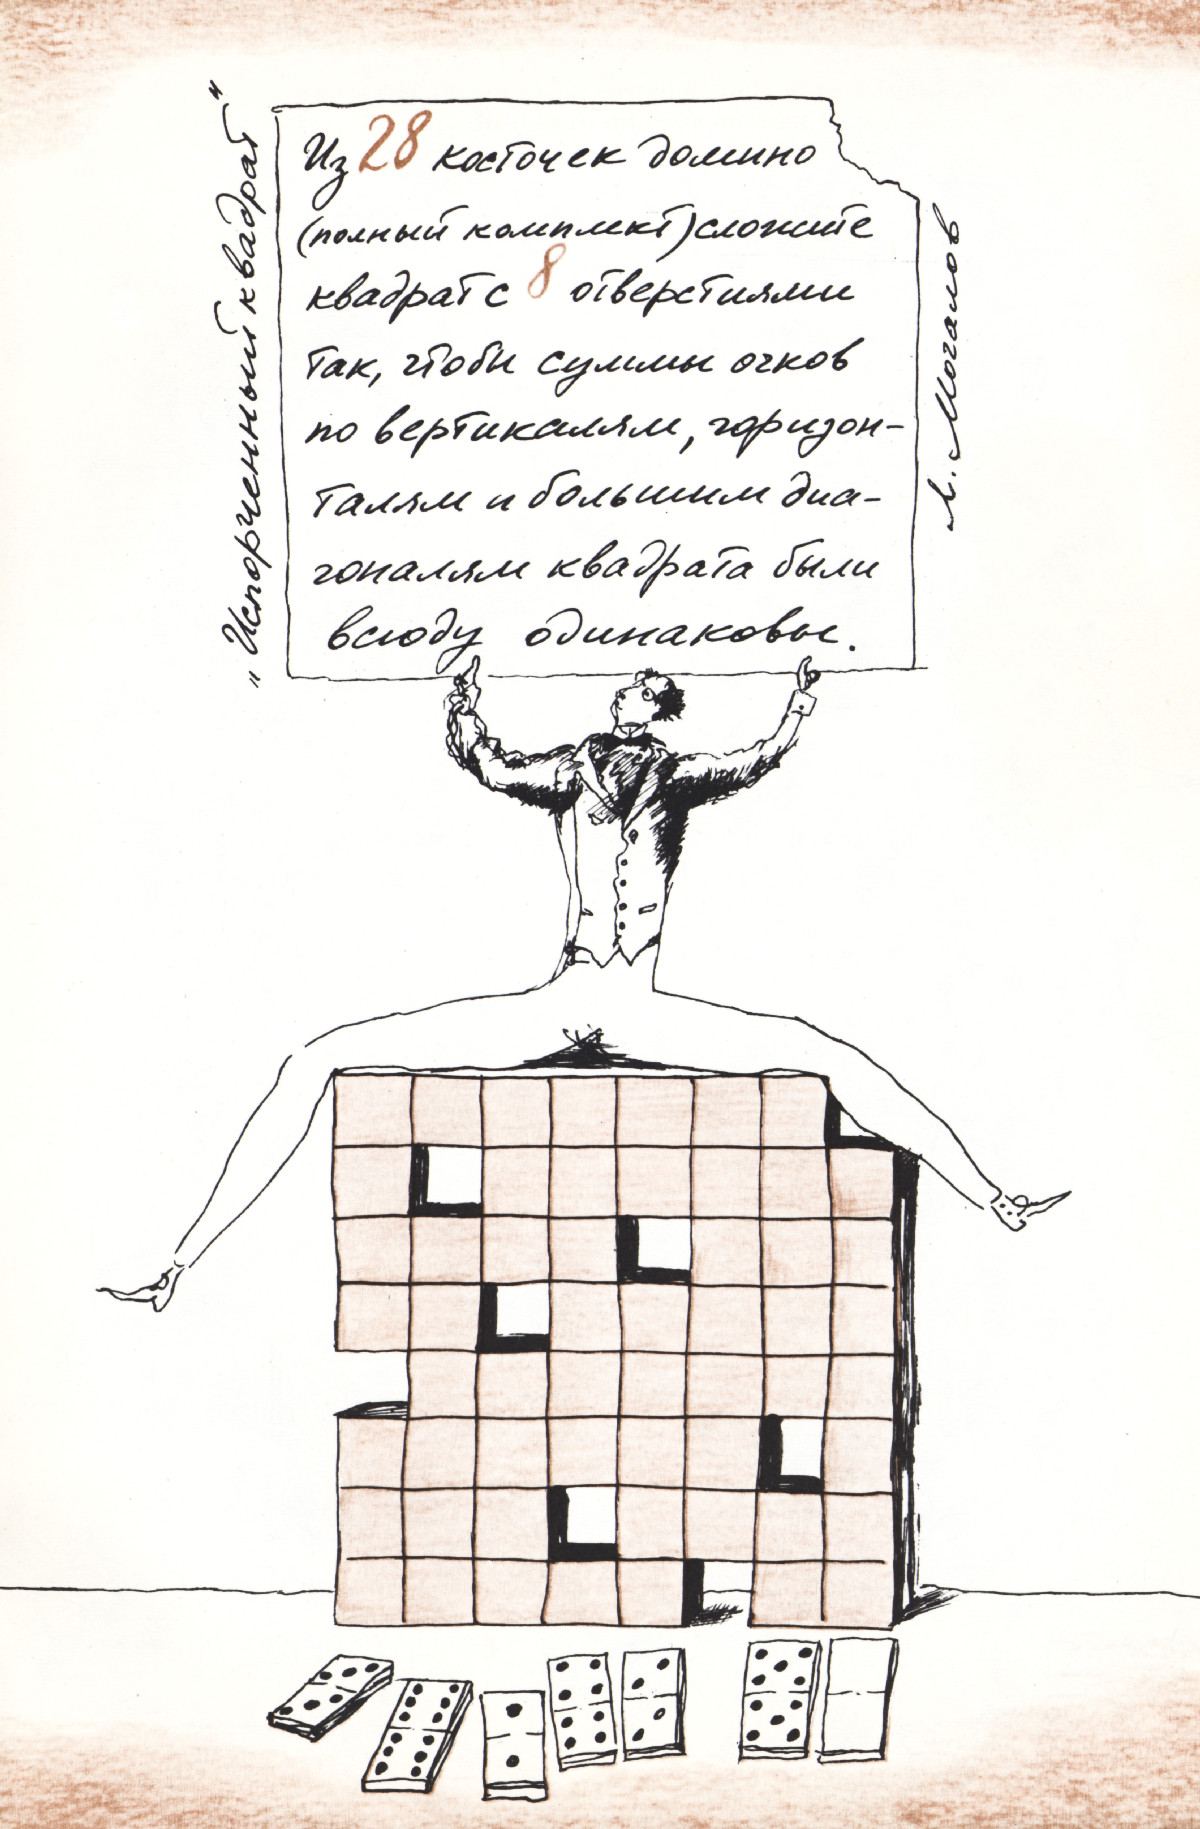 „Испорченный квадрат"
Из 28 косточек домино
(полный комплект) сложите
квадрат с 8 отверстиями
так, чтобы суммы очков
по вертикалям, горизон-
талям и большим диа-
гоналям квадрата были
всюду одинаковы.
Л. Мочалов